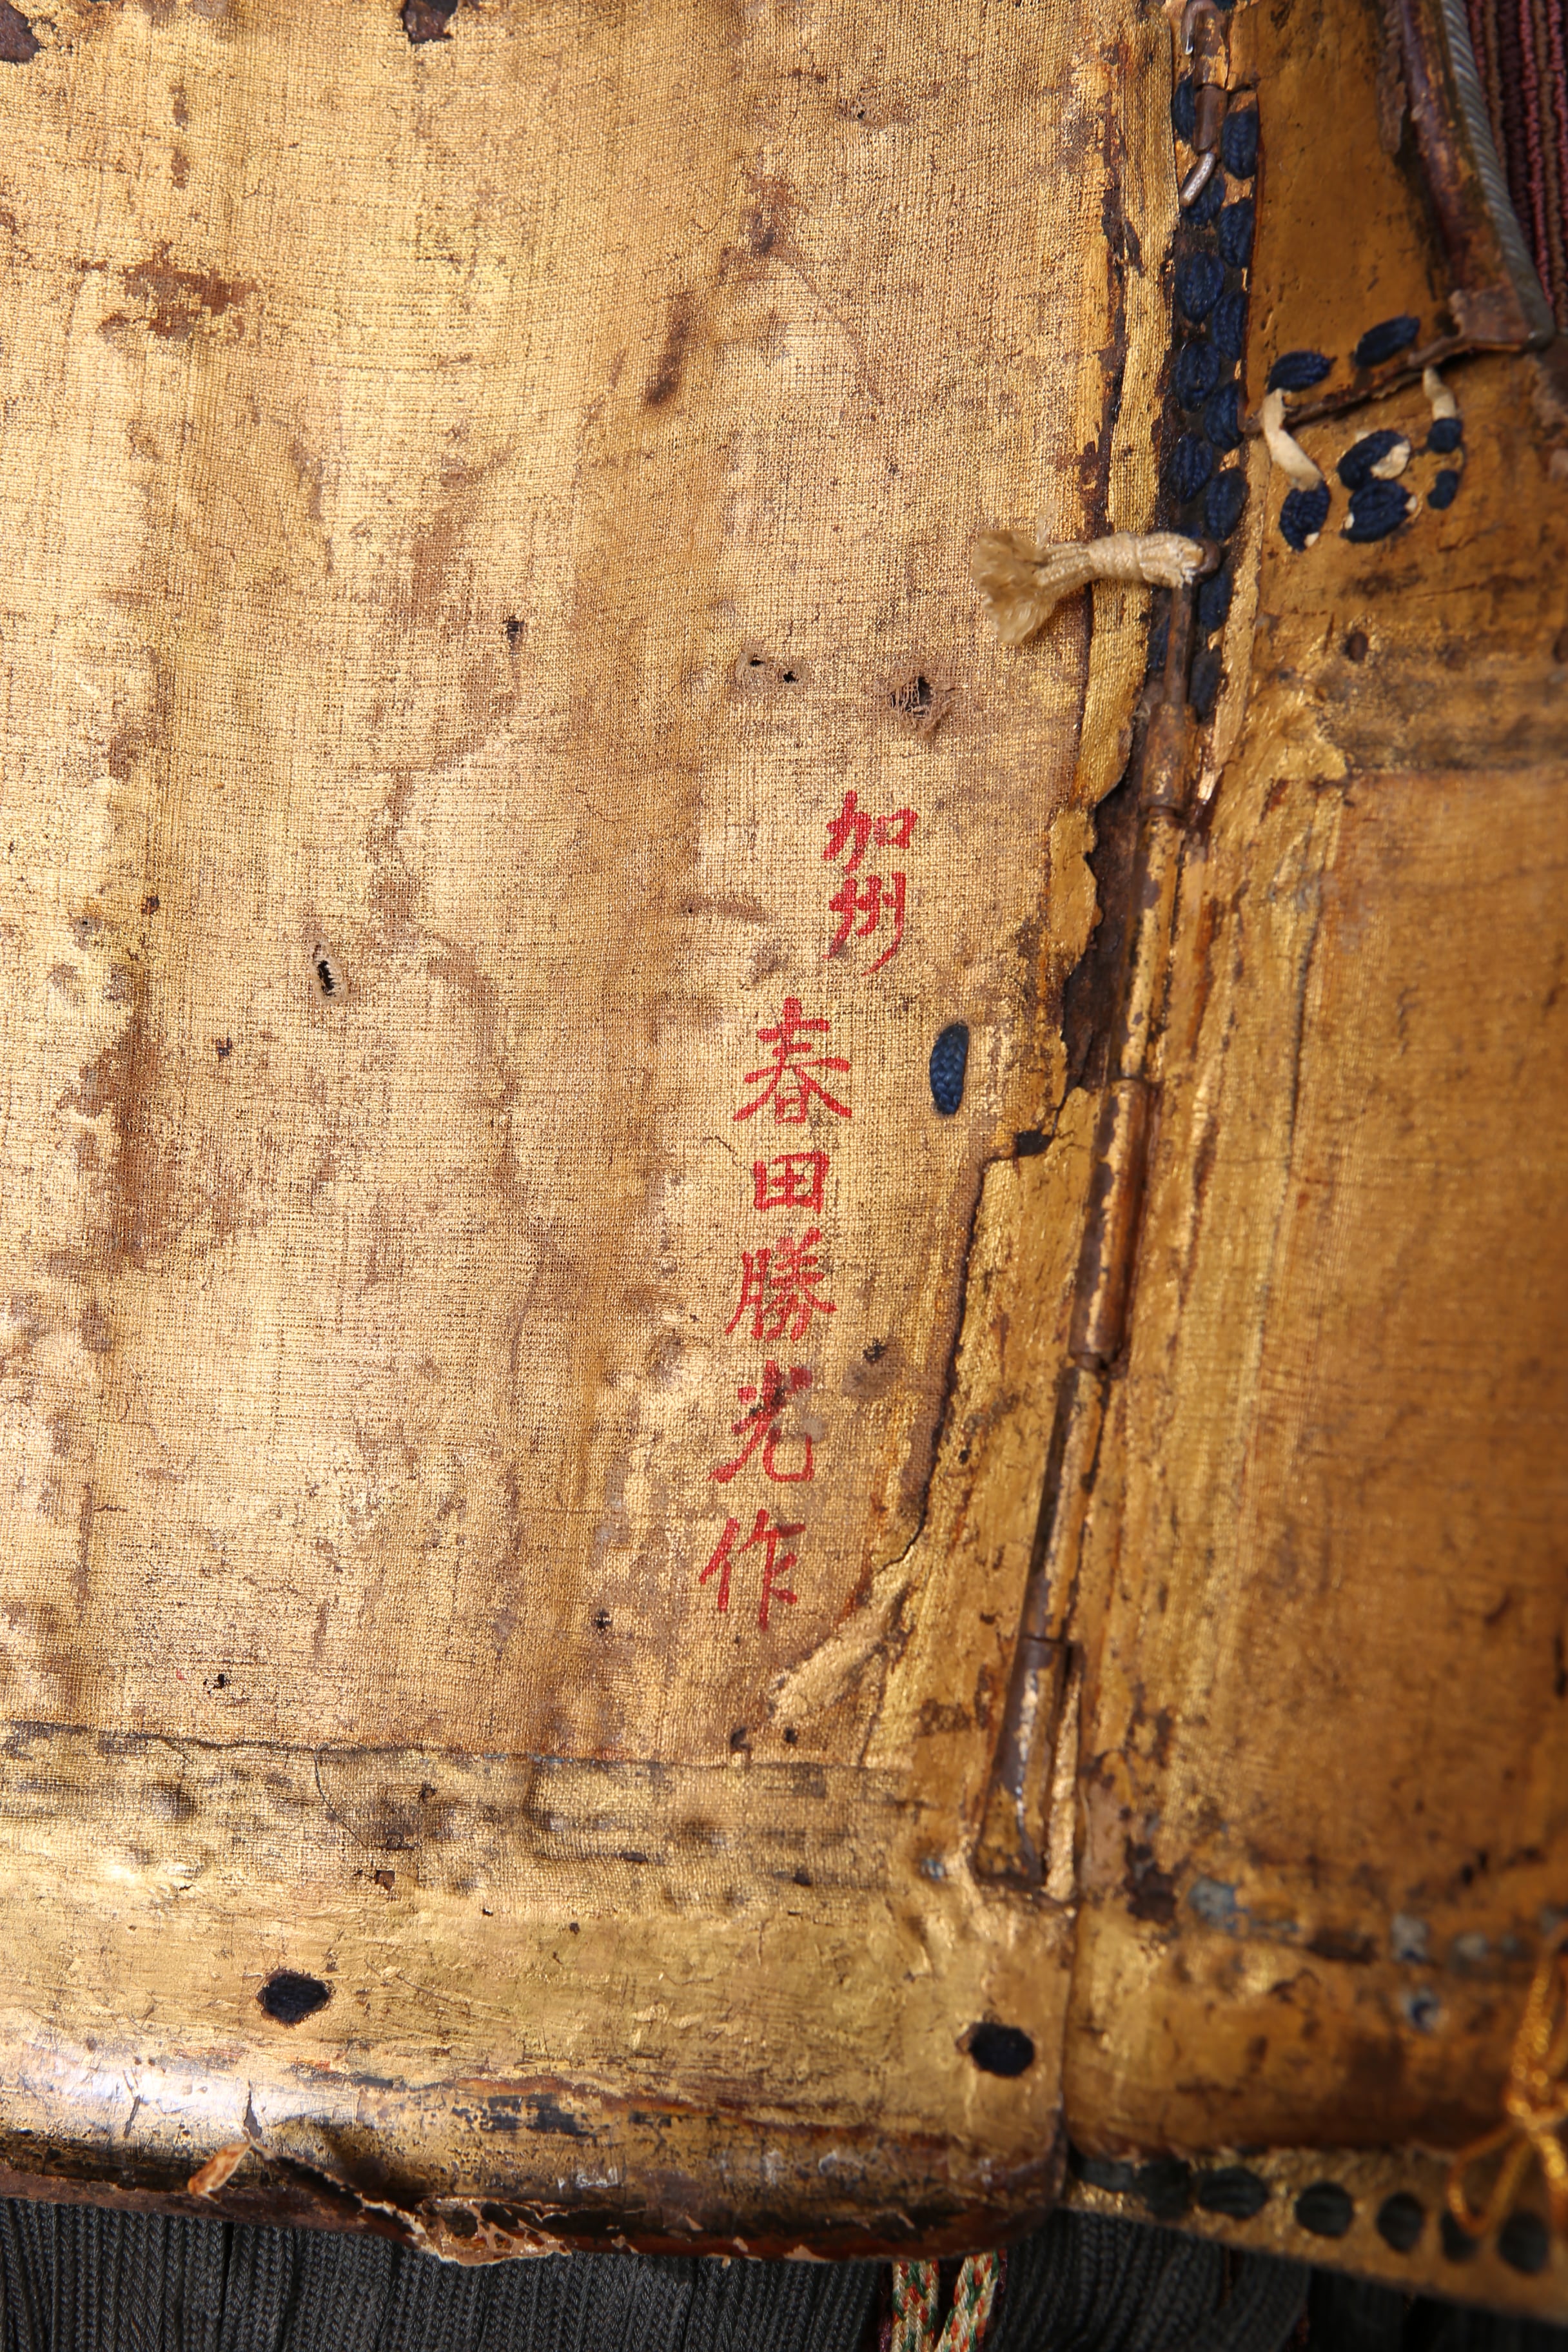 加州
春田勝光作